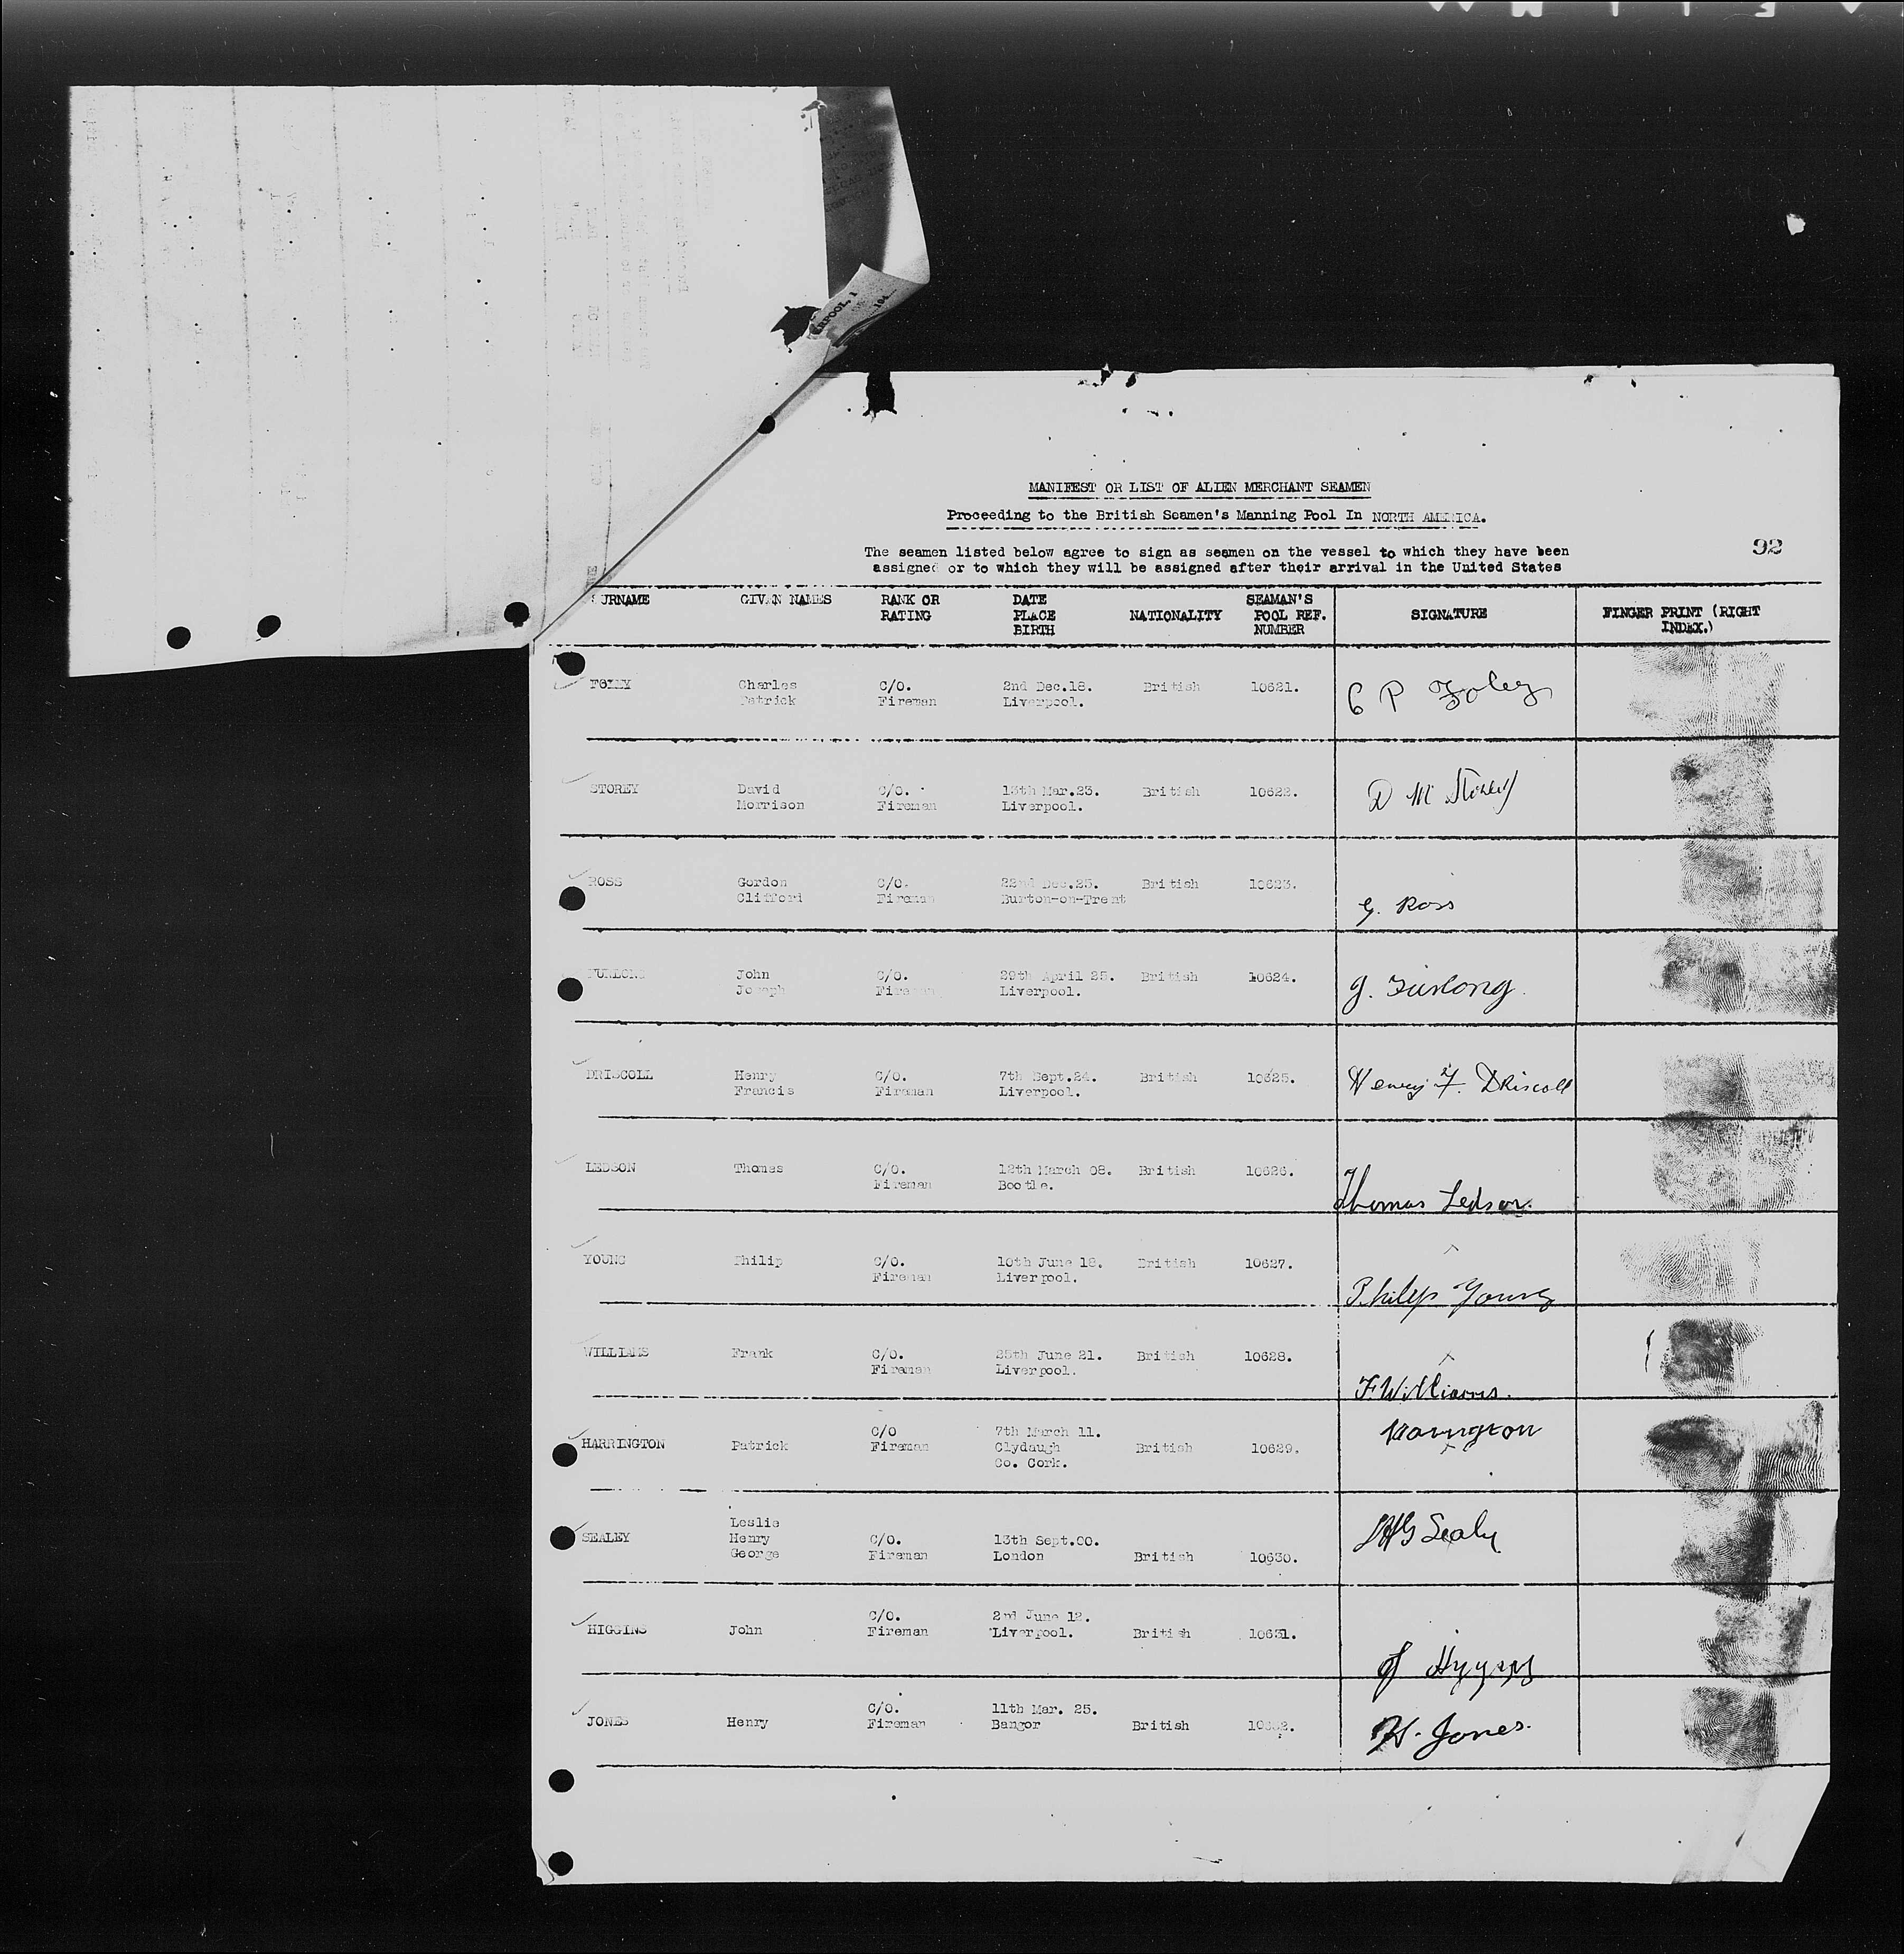 MANIFEST OR LIST OF ALIEN MERCHANT SEAMEN
Proceeding to the British Seamen's Manning Pool In NORTH AMERICA.
The seamen listed below agree to sign as seamen on the vessel to which they have been
assigned or to which they will be assigned after their arrival in the United States
92
SURNAME GIVEN NAMES RANK OR RATING DATE PLACE BIRTH NATIONALITY SEAMAN'S POOL REF. NUMBER SIGNATURE FINGER PRINT (RIGHT INDEX.)
FOLEY Charles C/O. 2nd Dec.18. British 10621. C P Foley
Patrick Fireman Liverpool.
STOREY David C/O. 13th Mar.23. British 10622. D M Storey
Morrison Fireman Liverpool.
ROSS Gordon C/O. 22nd Dec.25. British 10623. G. Ross
Clifford Fireman Burton-on-Trent
FURLONG John C/O. 29th April 25. British 10624. J. Furlong.
Joseph Fireman Liverpool.
DRISCOLL Henry C/O. 7th Sept.24. British 10625. Henry F. Driscoll
Francis Fireman Liverpool.
LEDSON Thomas C/O. 12th March 08. British 10626. Thomas Ledson.
Fireman Bootle.
YOUNG Philip C/O. 10th June 18. British 10627. Philip Young
Fireman Liverpool.
WILLIAMS Frank C/O. 25th June 21. British 10628. F Williams.
Fireman Liverpool.
HARRINGTON Patrick C/O Fireman 7th March 11. British 10629. Harrington
Clydaugh
Co. Cork.
SEALEY Leslie C/O. 13th Sept.00. British 10630. LHG Sealy
Henry Fireman London
George
HIGGINS John C/O. 2nd June 12. British 10631. J Higgins
Fireman Liverpool.
JONES Henry C/O. 11th Mar. 25. British 10632. H. Jones.
Fireman Bangor